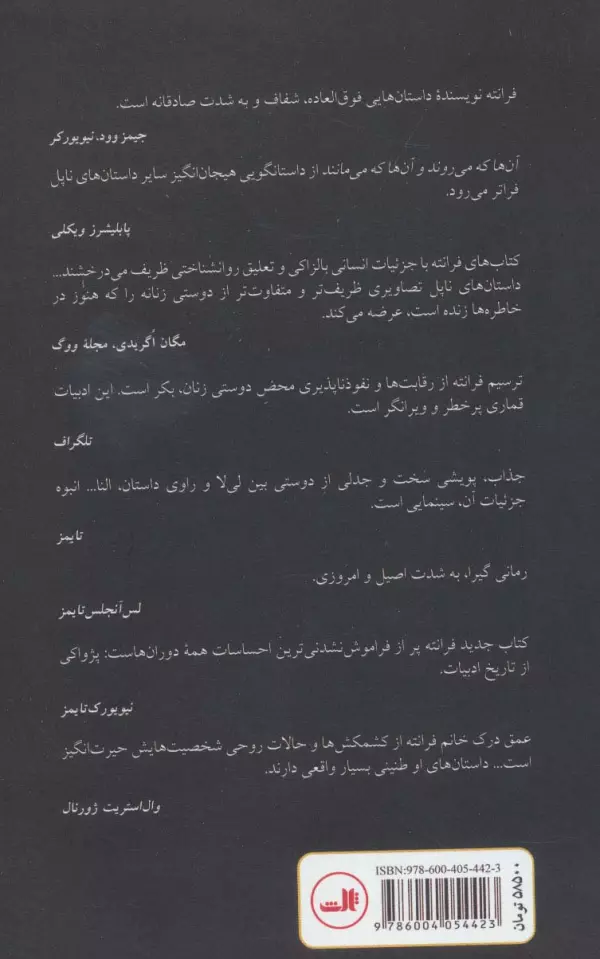 فرانته نویسندهٔ داستان‌هایی فوق‌العاده، شفاف و به شدت صادقانه است.
جیمز وود، نیویورکر
آن‌ها که می‌روند و آن‌ها که می‌مانند از داستانگویی هیجان‌انگیز سایر داستان‌های ناپل
فراتر می‌رود.
پابلیشرز ویکلی
کتاب‌های فرانته با جزئیات انسانی بالزاکی و تعلیق روانشناختی ظریف می‌درخشند...
داستان‌های ناپل تصاویری ظریف‌تر و متفاوت‌تر از دوستی زنانه را که هنوز در
خاطره‌ها زنده است، عرضه می‌کند.
مگان اُگریدی، مجلهٔ ووگ
ترسیم فرانته از رقابت‌ها و نفوذناپذیری محضِ دوستی زنان، بکر است. این ادبیات
قماری پرخطر و ویرانگر است.
تلگراف
جذاب، پویشی سخت و جدلی از دوستی بین لی‌لا و راوی داستان، النا... انبوه
جزئیات آن، سینمایی است.
تایمز
رمانی گیرا، به شدت اصیل و امروزی.
لس‌آنجلس‌تایمز
کتاب جدید فرانته پر از فراموش‌نشدنی‌ترین احساسات همهٔ دوران‌هاست: پژواکی
از تاریخ ادبیات.
نیویورک‌تایمز
عمق درک خانم فرانته از کشمکش‌ها و حالات روحی شخصیت‌هایش حیرت‌انگیز
است... داستان‌های او طنینی بسیار واقعی دارند.
وال‌استریت ژورنال
ISBN:978-600-405-442-3
9 786004 054423
ثالث
۵۸۵۰۰ تومان